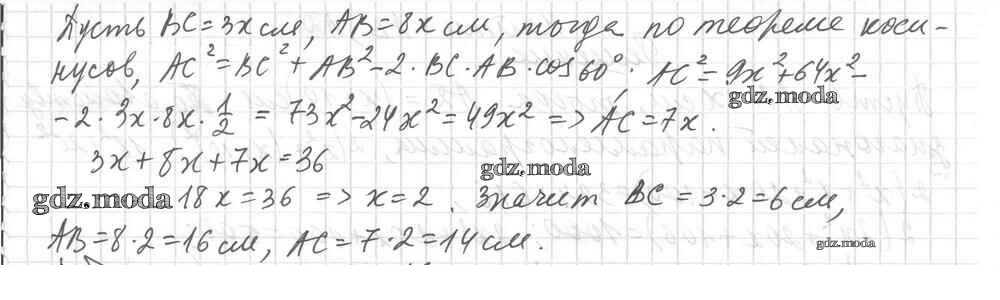 Пусть BC=3x см, AB=8x см, тогда по теореме коси-
нусов, AC²=BC²+AB²-2·BC·AB·cos60°. AC²=9x²+64x²-
gdz.moda
-2·3x·8x·1/2 = 73x²-24x²=49x² => AC=7x.
3x+8x+7x=36
gdz.moda
gdz.moda 18x=36 => x=2. Значит BC=3·2=6 см,
AB=8·2=16 см, AC=7·2=14 см.
gdz.moda